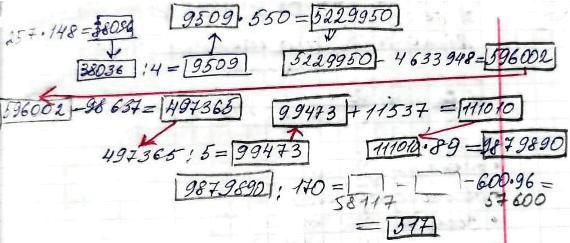 257·148=38036 9509·550=5229950
38036:4=9509 5229950-4633948=596002
596002-98637=497365 99473+11537=111010
497365:5=99473 111010·89=9879890
9879890:170= - -600·96=
58117 57600
=517